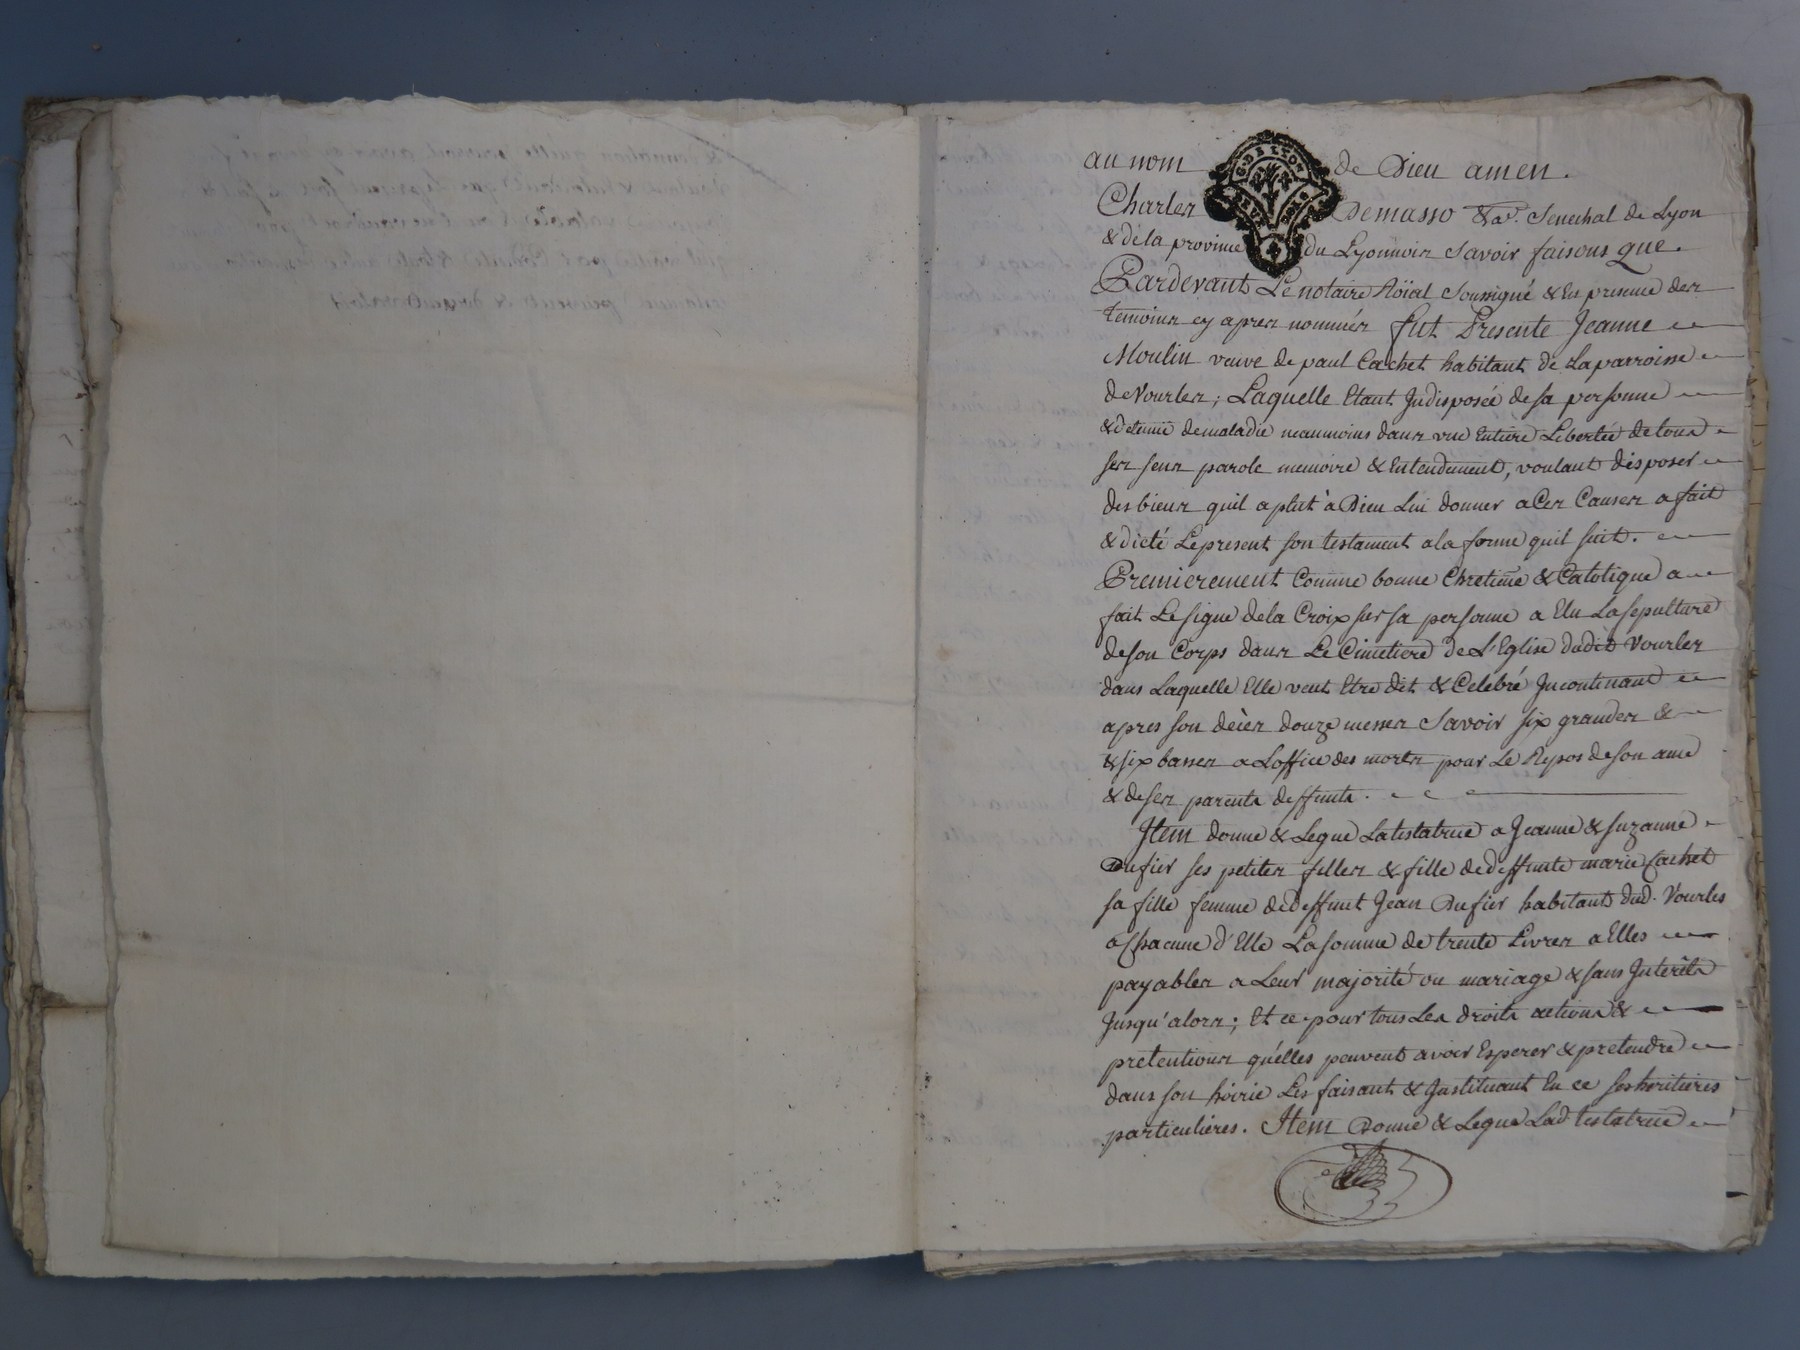 au nom de Dieu amen.
Charles Demasso &a. Senechal de Lyon
& de la province du Lyonnois Savoir faisons que
Pardevant Le notaire Roïal Soussigné & En presence des
temoins cy apres nommés fut Presente Jeanne
Moulin veuve de paul Cachet habitant de La parroisse
de Vourles; Laquelle Etant Indisposée de sa personne
& detenue de maladie neanmoins dans une Entiere Libertée de tous
ses sens parole memoire & Entendement, voulant disposer
des biens quil a plut à Dieu Lui donner a Ces Causes a fait
& dicté Le present son testament a la forme quil suit.
Premierement Comme bonne Chretiene & Catolique a
fait Le signe de la Croix sur sa personne a Elu La sepulture
de son Corps dans Le Cimetiere de L'Eglise dudit Vourles
dans Laquelle Elle veut Etre dit & Celébré Incontinant
apres son décès douze messes Savoir six grandes &
& six basses a Loffice des morts pour Le Repos de son ame
& de ses parents deffunts.
Item donne & Legue La testatrice a Jeanne & Suzanne
Dufier ses petites filles & fille de deffunte marie Cachet
sa fille femme de deffunt Jean Dufier habitant dud. Vourles
a Chacune d'Elle La somme de trente Livres a Elles
payables a Leur majorité ou mariage & sans Interêts
Jusqu'alors; Et ce pour tous Les droits actions &
pretentions qu'elles peuvent avoir Esperer & pretendre
dans son hoirie Les faisant & Instituant En ce ses heritieres
particulieres. Item Donne & Legue Lad. testatrice
G. DE LYON